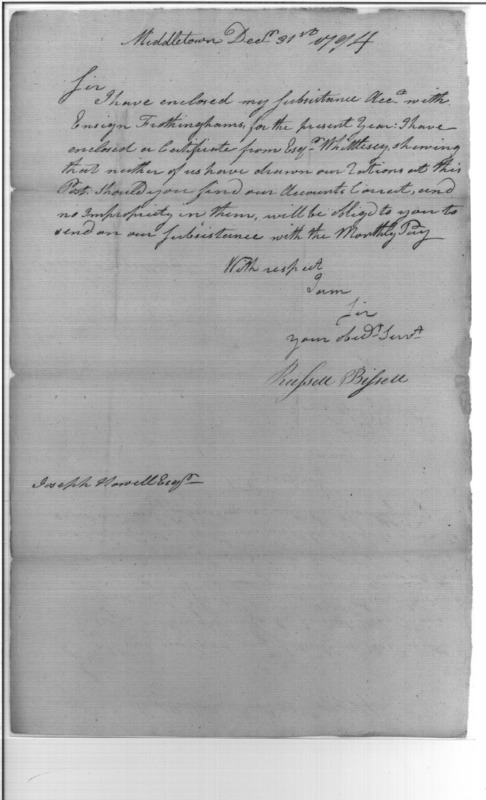 Middletown Decr. 31st 1794
Sir
I have enclosed my Subsistance Acct. with
Ensign Frothinghams, for the present Year: I have
enclosed a Certificate from Esqr. Whittlesey, shewing
that neither of us have drawn our Rations at this
Post. Should you find our Accounts Correct, and
no Impropriety in them, will be oblig'd to you to
send on our Subsistance with the Monthly Pay
With respect
I am
Sir
your Obedt. Servt.
Russell Bissell
Joseph Howell Esqr.